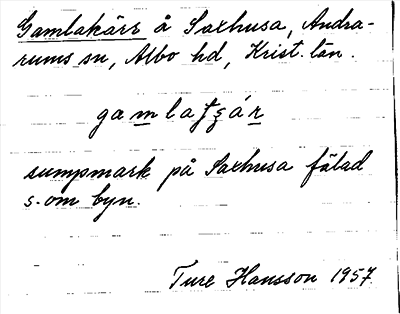 Gamlakärr å Saxhusa, Andra-
rums sn, Albo hd, Krist. län.
sumpmark på Saxhusa fälad
s. om byn.
Ture Hansson 1957